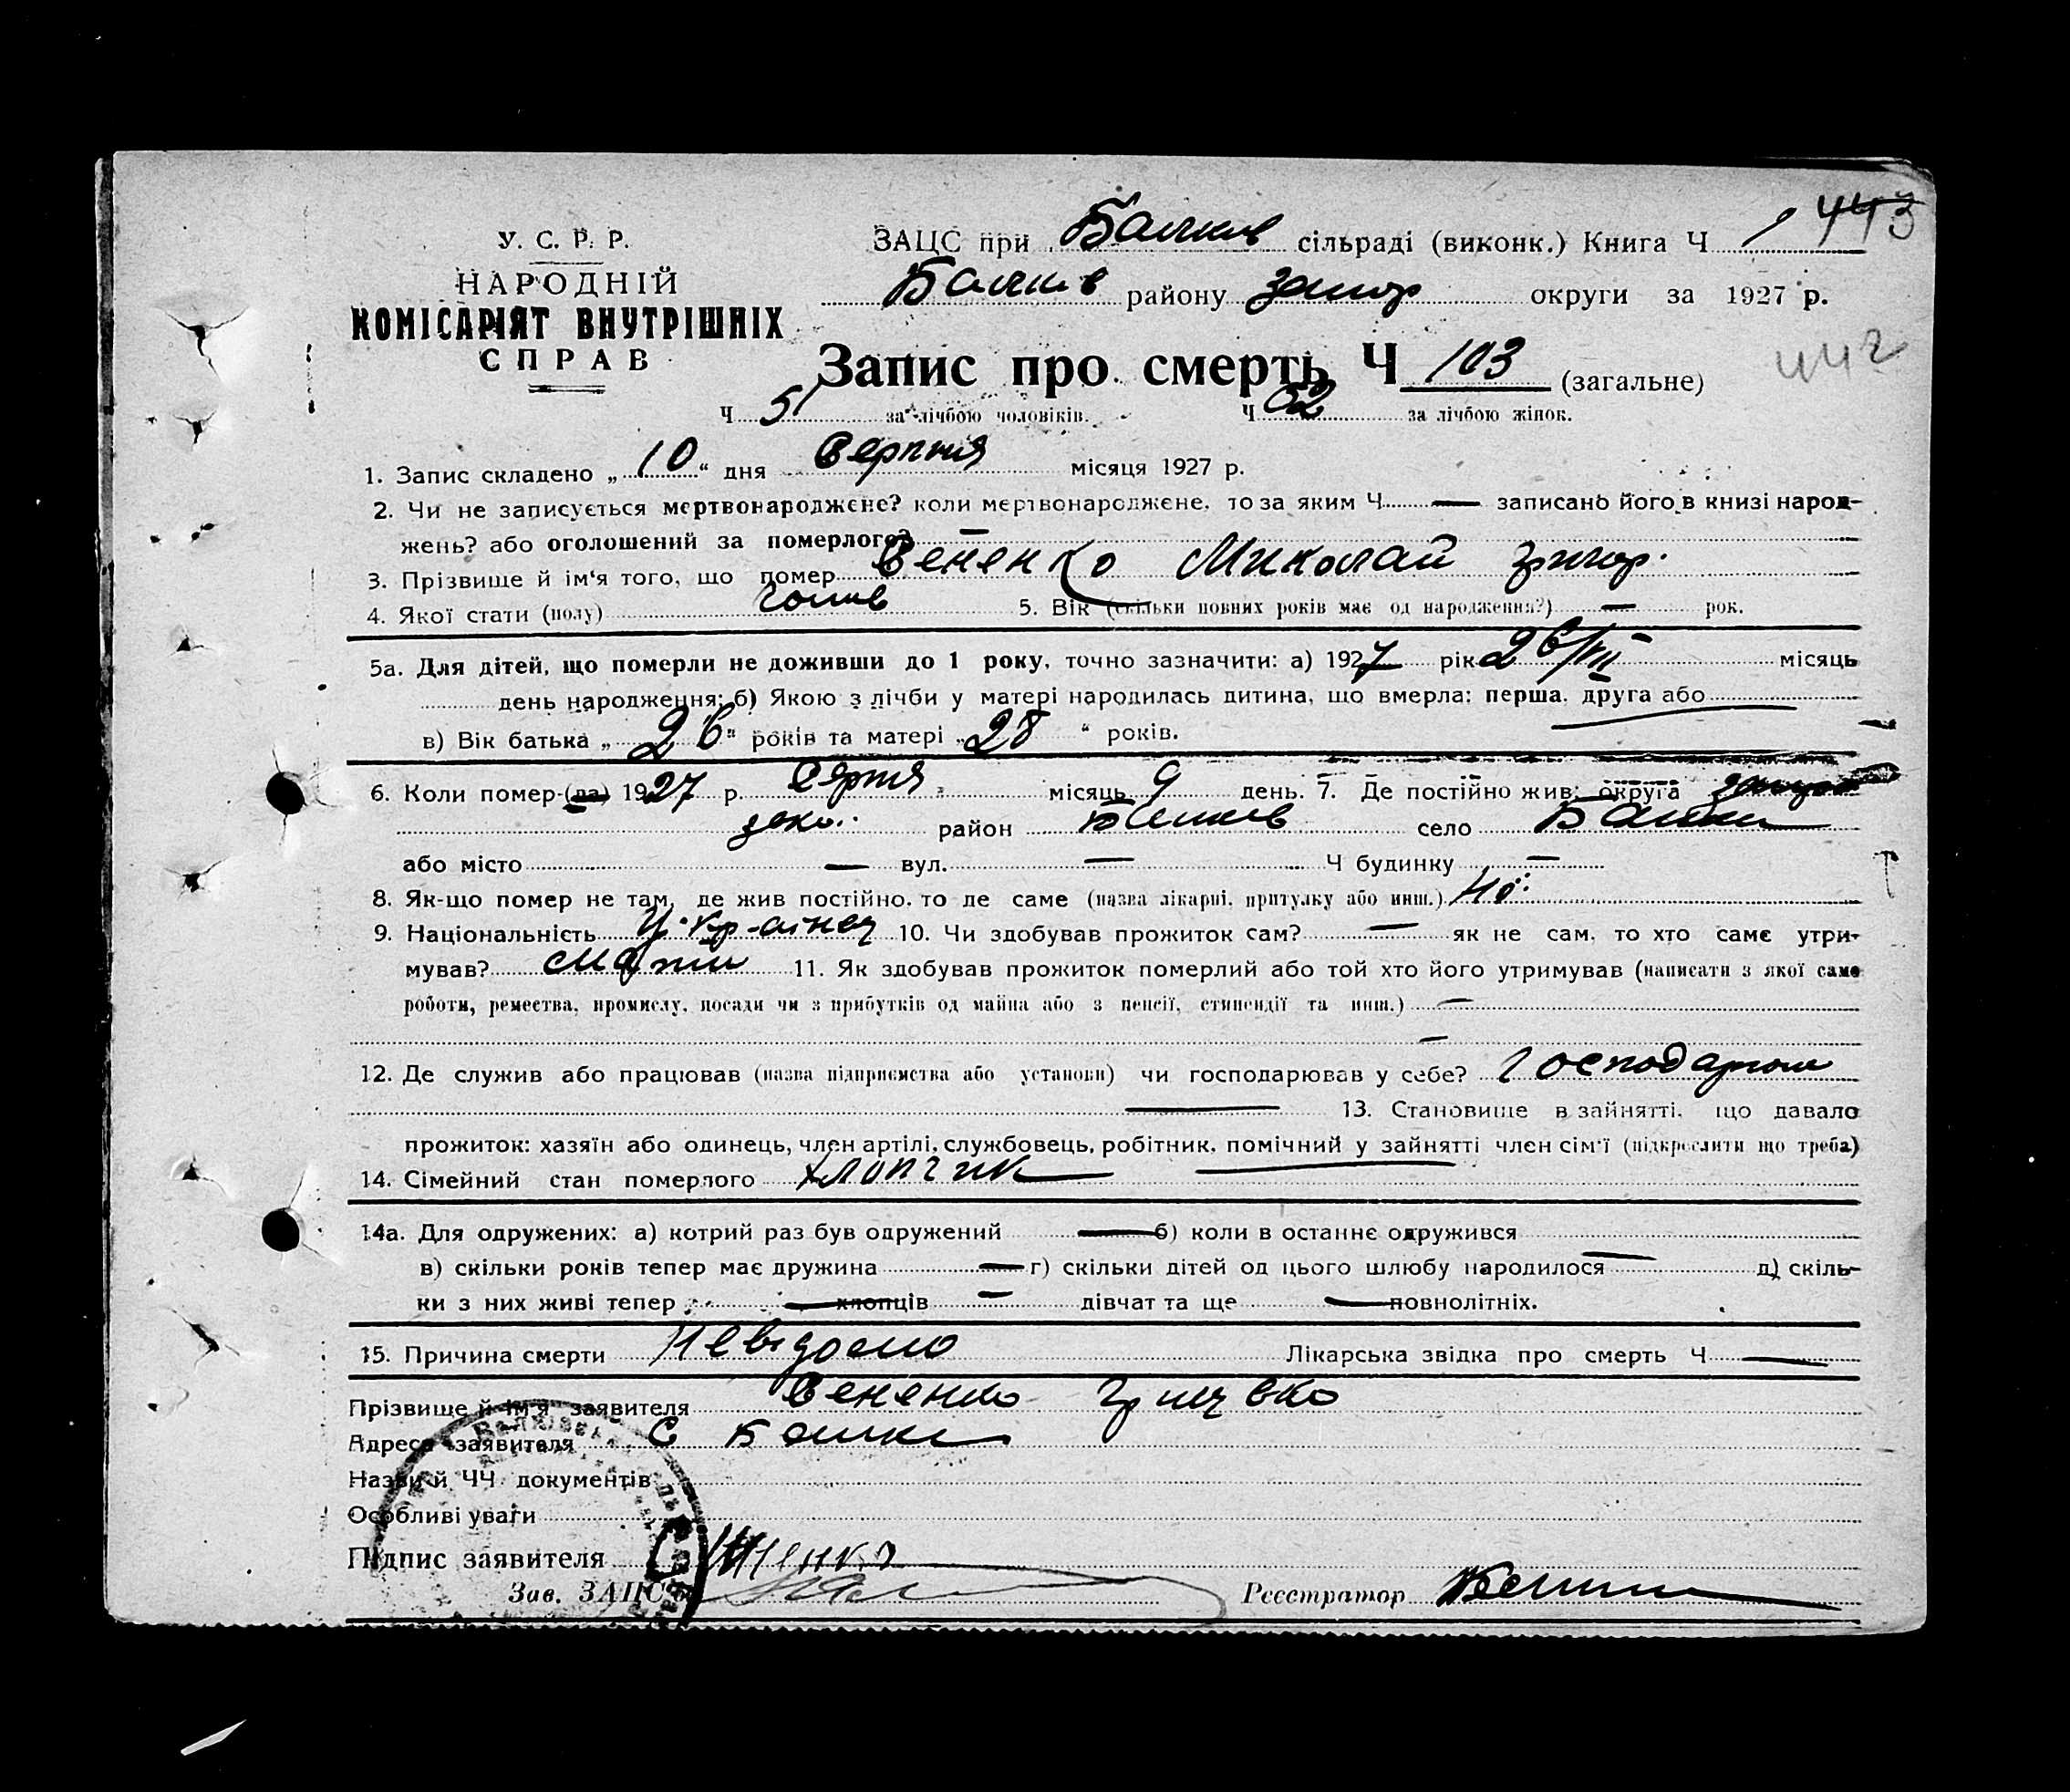 443
У. С. Р. Р.
НАРОДНІЙ
КОМІСАРІЯТ ВНУТРІШНІХ
СПРАВ
ЗАЦС при Балків сільраді (виконк.) Книга Ч 1
Балків району Запор округи за 1927 р.
442
Запис про смерть Ч 103 (загальне)
Ч 51 за лічбою чоловіків. Ч 52 за лічбою жінок.
1. Запис складено „ 10 “ дня Серпня місяця 1927 р.
2. Чи не записується мертвонароджене? коли мертвонароджене, то за яким Ч — записано його в книзі народ-
жень? або оголошений за померлого? —
3. Прізвище й ім'я того, що помер Вененко Миколай Григор.
4. Якої стати (полу) Чолов 5. Вік (скільки повних років має од народження?) — рок.
5а. Для дітей, що померли не доживши до 1 року, точно зазначити: а) 1927 рік 26/VII місяць
день народження; б) Якою з лічби у матері народилась дитина, що вмерла: перша, друга або
в) Вік батька „ 26 “ років та матері „ 28 “ років.
6. Коли помер-(ла) 1927 р. Серпня місяць 9 день. 7. Де постійно жив: округа
район Балків село Балки
або місто — вул. — Ч будинку —
8. Як-що помер не там, де жив постійно, то де саме (назва лікарні, притулку або инш.)
9. Національність Українец 10. Чи здобував прожиток сам? — як не сам, то хто саме утри-
мував? мати 11. Як здобував прожиток померлий або той хто його утримував (написати з якої саме
роботи, ремества, промислу, посади чи з прибутків од майна або з пенсії, стипендії та инш.) —
—
12. Де служив або працював (назва підприємства або установи) чи господарював у себе?
— 13. Становище в зайнятті, що давало
прожиток: хазяїн або одинець, член артілі, службовець, робітник, помічний у зайнятті член сім'ї (підкреслити що треба)
14. Сімейний стан померлого хлопчик
14а. Для одружених: а) котрий раз був одружений — б) коли в останнє одружився
в) скільки років тепер має дружина — г) скільки дітей од цього шлюбу народилося — д) скіль-
ки з них живі тепер — хлопців — дівчат та ще — повнолітніх.
15. Причина смерти Невідомо Лікарська звідка про смерть Ч —
Прізвище й ім'я заявителя Вененко
Адреса заявителя С Балки
Назви й ЧЧ документів
Особливі уваги
Підпис заявителя
Зав. ЗАЦС'у Реєстратор